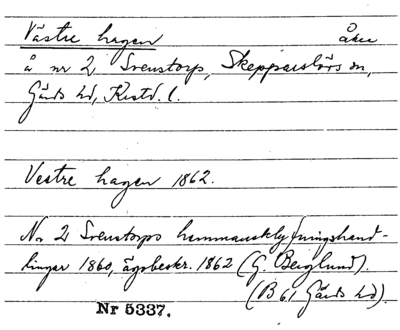 Västre hagen åker
å nr 2 Svenstorp, Skepparslövs sn,
Gärds hd, Krist. l.
Vestre hagen 1862.
No 2 Svenstorps hemmansklyfningshand-
lingar 1860, ägobeskr. 1862 (G. Berglund).
(B 61 Gärds hd).
Nr 5337.